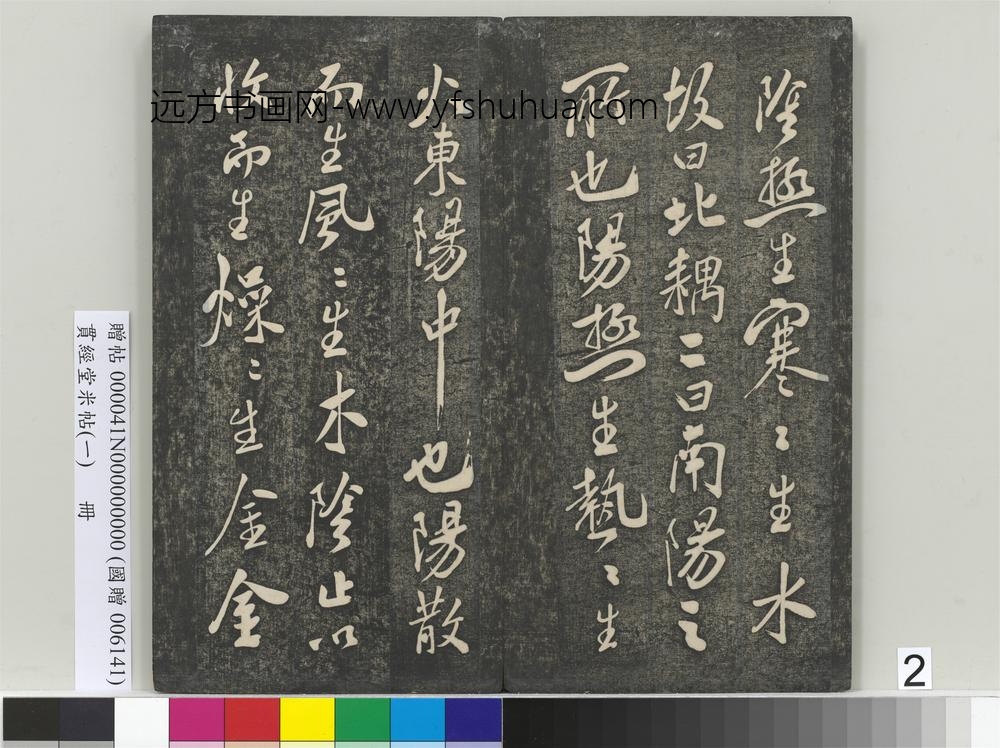 陰極生寒〻生水
故曰北耦二曰南陽之
所也陽極生熱〻生
火東陽中也陽散
而生風〻生木陰止以
而生燥〻生金金
远方书画网-www.yfshuhua.com
贈帖 000041N000000000 (國贈 006141)
貫經堂米帖(一) 冊
2